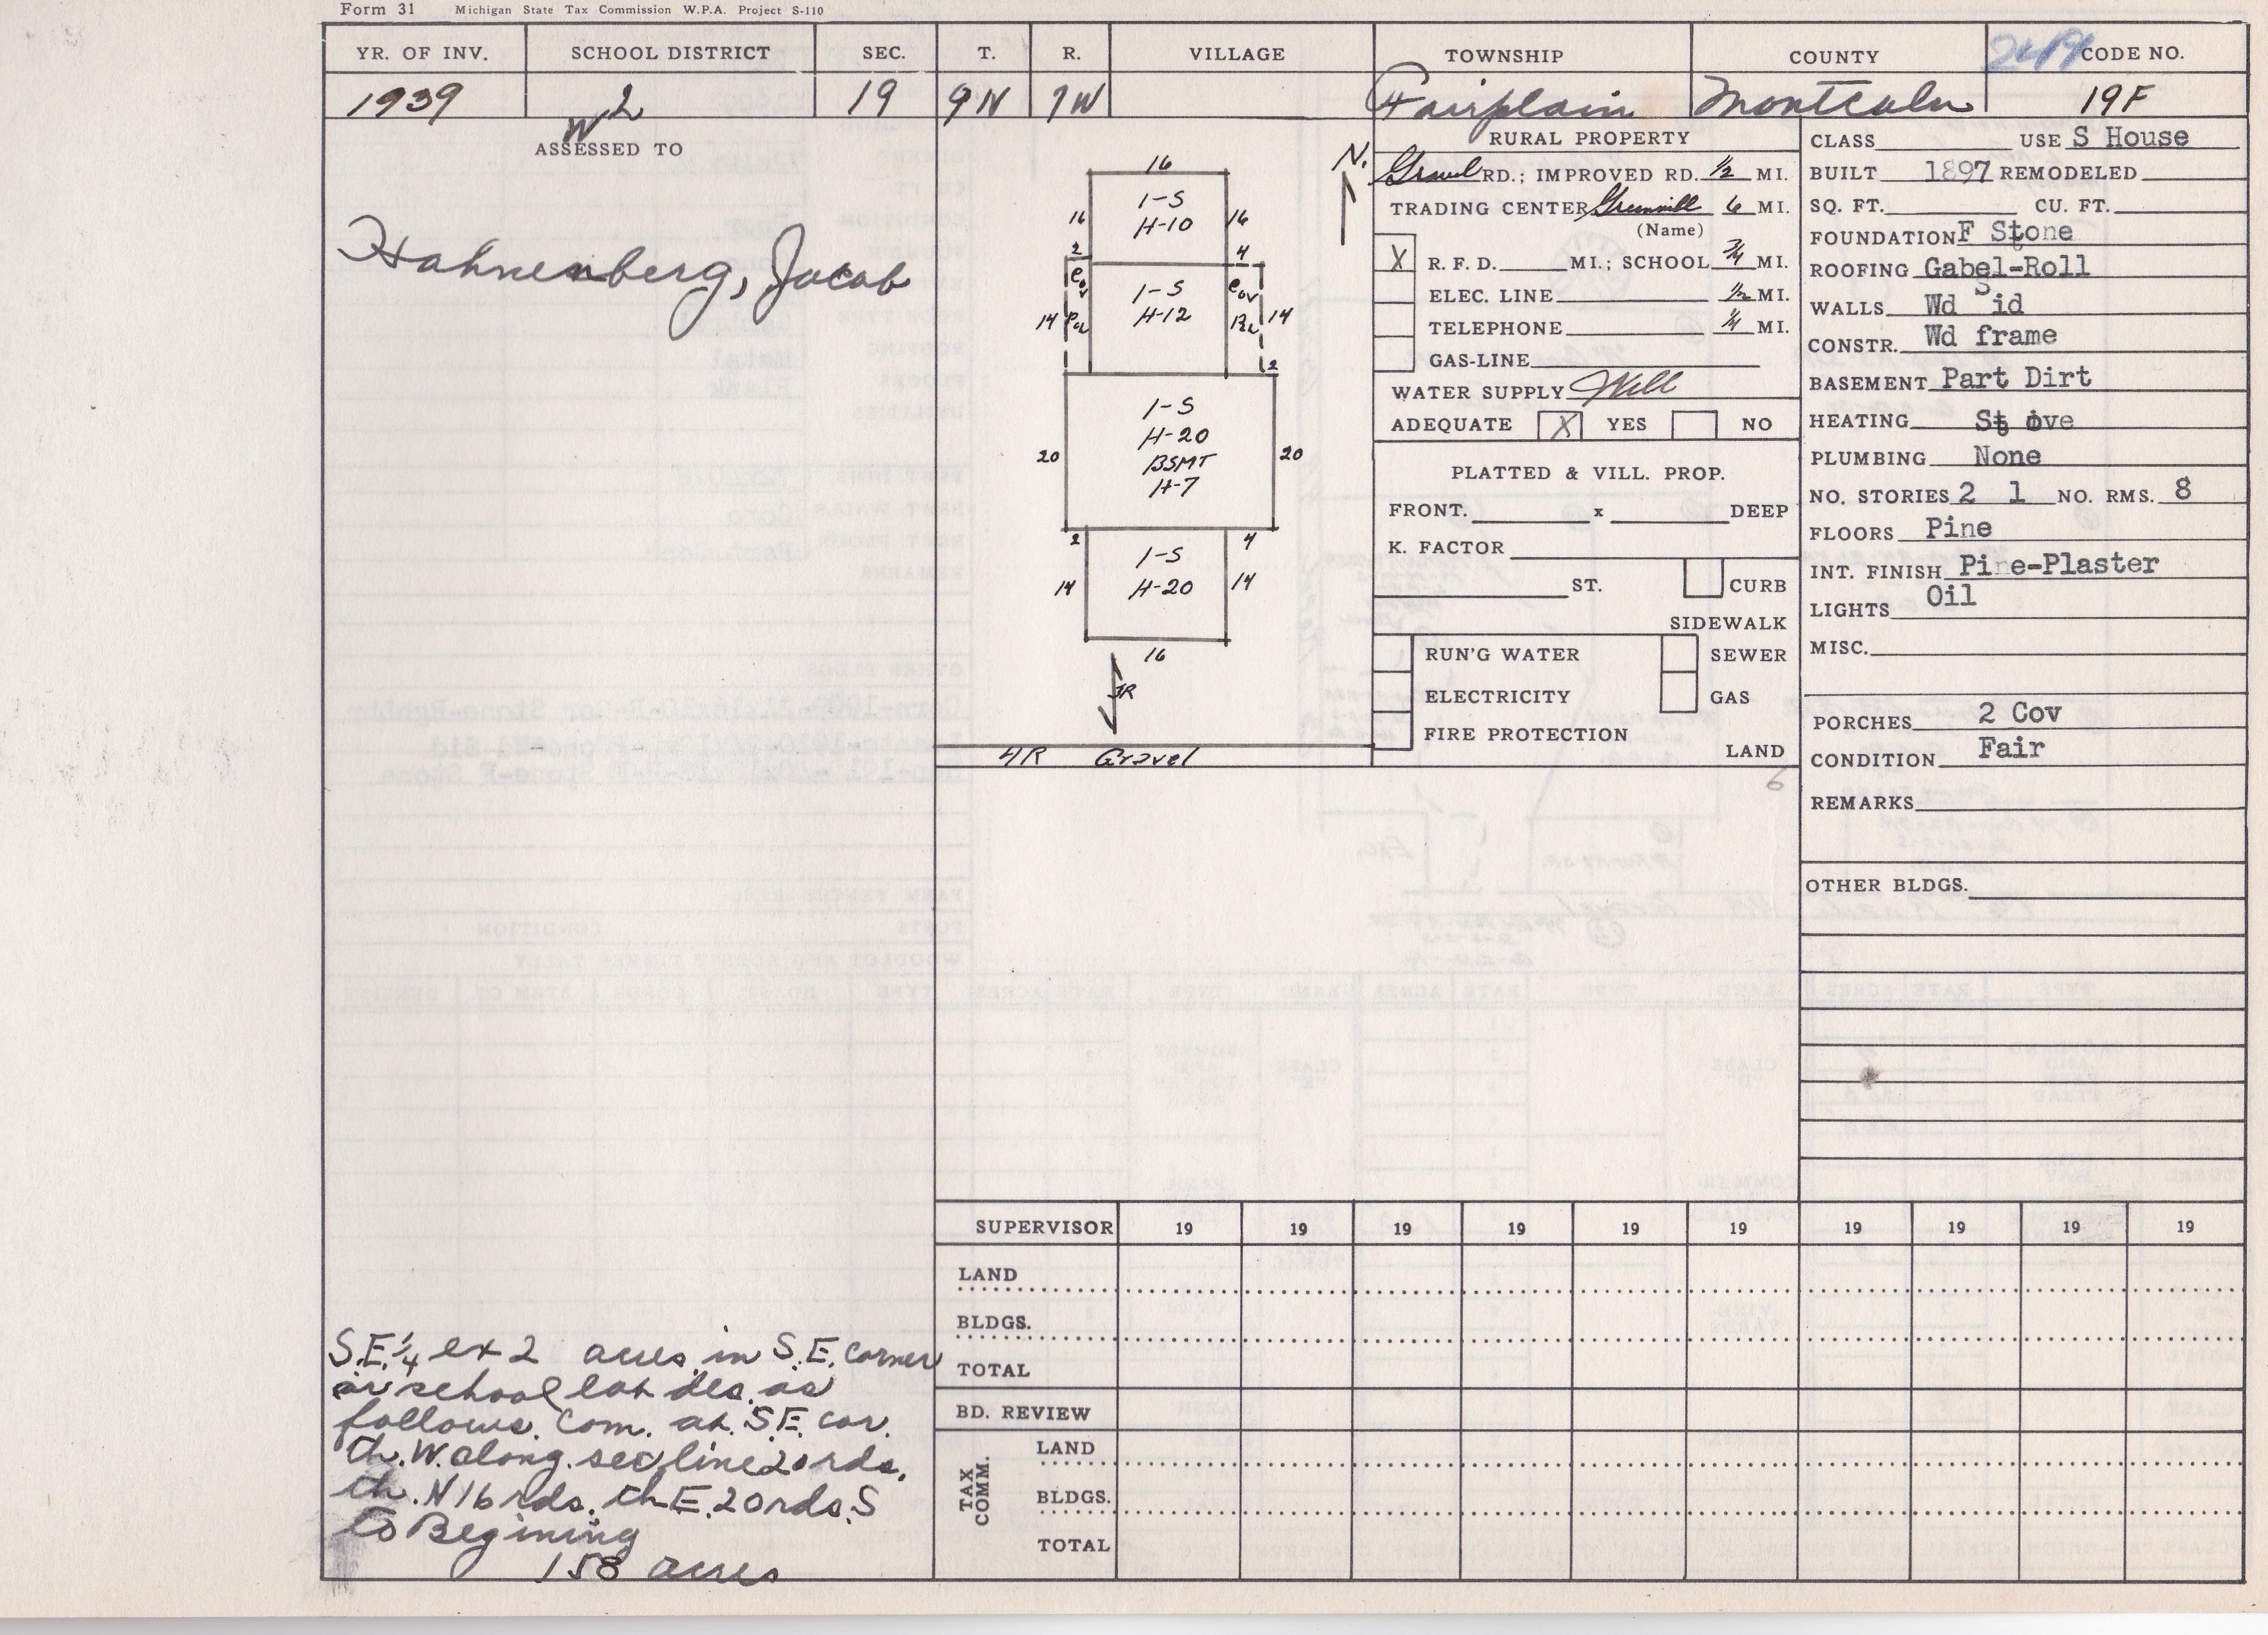 Form 31 Michigan State Tax Commission W.P.A. Project S-110
YR. OF INV. SCHOOL DISTRICT SEC. T. R. VILLAGE TOWNSHIP COUNTY CODE NO.
1939 W2 19 9N 7W Fairplain Montcalm 19F
ASSESSED TO
Hahnenberg, Jacob
S.E.¼ ex 2 acres in S.E. corner
or school lot des. as
follows. Com. at. S.E. cor.
th. W. along sec line 20 rds.
th. N 16 rds. th E. 20 rds. S
to Begining
158 acres
N.
16
1-S
H-10
16 16
2 4
Cov Cov
1-S
H-12
14 14
2
1-S
H-20
BSMT
H-7
20 20
2 4
1-S
H-20
14 14
16
4R Gravel
RURAL PROPERTY
Gravel RD.; IMPROVED RD. ½ MI.
TRADING CENTER Greenville 6 MI.
(Name)
X R. F. D. MI.; SCHOOL ¾ MI.
ELEC. LINE ½ MI.
TELEPHONE ¼ MI.
GAS-LINE
WATER SUPPLY Well
ADEQUATE X YES NO
PLATTED & VILL. PROP.
FRONT. x DEEP
K. FACTOR
ST. CURB
SIDEWALK
RUN'G WATER SEWER
ELECTRICITY GAS
FIRE PROTECTION
LAND
6
CLASS USE S House
BUILT 1897 REMODELED
SQ. FT. CU. FT.
FOUNDATION F Stone
ROOFING Gabel-Roll
WALLS Wd Sid
CONSTR. Wd frame
BASEMENT Part Dirt
HEATING Stove
PLUMBING None
NO. STORIES 2 1 NO. RMS. 8
FLOORS Pine
INT. FINISH Pine-Plaster
LIGHTS Oil
MISC.
PORCHES 2 Cov
CONDITION Fair
REMARKS
OTHER BLDGS.
SUPERVISOR 19 19 19 19 19 19 19 19 19 19
LAND
BLDGS.
TOTAL
BD. REVIEW
TAX COMM.
LAND
BLDGS.
TOTAL